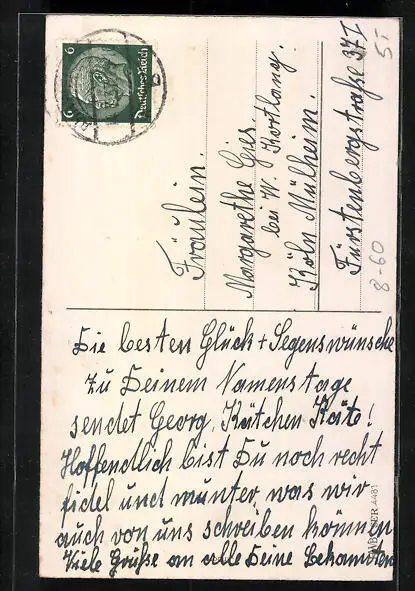 6
Deutsches Reich
6
Fräulein.
Margarethe Gies.
bei W. Kortlang.
Köln Mülheim.
Fürstenbergstraße 37 I
5T
8-60
Die besten Glück + Segenswünsche
zu Deinem Namenstage
sendet Georg, Kätchen Käte!
Hoffendlich bist Du noch recht
fidel und munter, was wir
auch von uns schreiben können
Viele Grüße an alle Deine Bekannten
4481